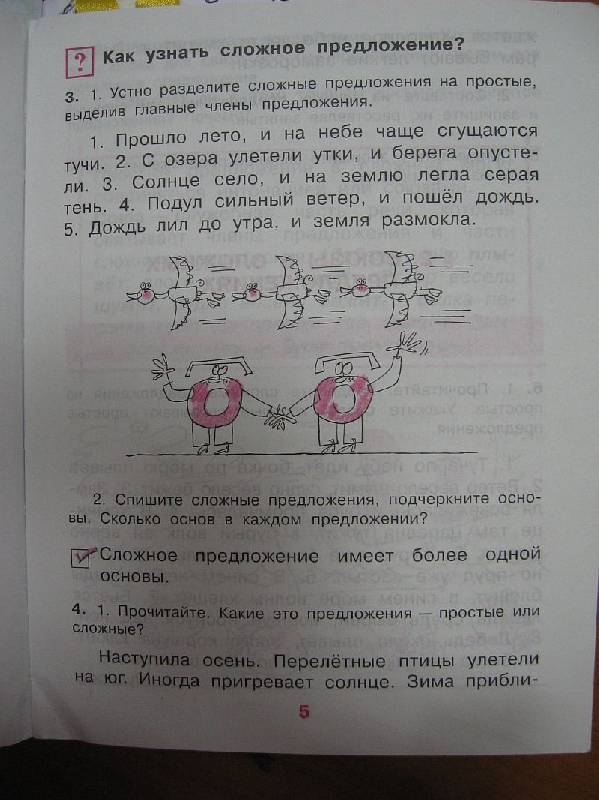 ? Как узнать сложное предложение?
3. 1. Устно разделите сложные предложения на простые,
выделив главные члены предложения.
1. Прошло лето, и на небе чаще сгущаются
тучи. 2. С озера улетели утки, и берега опусте-
ли. 3. Солнце село, и на землю легла серая
тень. 4. Подул сильный ветер, и пошёл дождь.
5. Дождь лил до утра. и земля размокла.
2. Спишите сложные предложения, подчеркните осно-
вы. Сколько основ в каждом предложении?
Сложное предложение имеет более одной
основы.
4. 1. Прочитайте. Какие это предложения — простые или
сложные?
Наступила осень. Перелётные птицы улетели
на юг. Иногда пригревает солнце. Зима прибли-
5